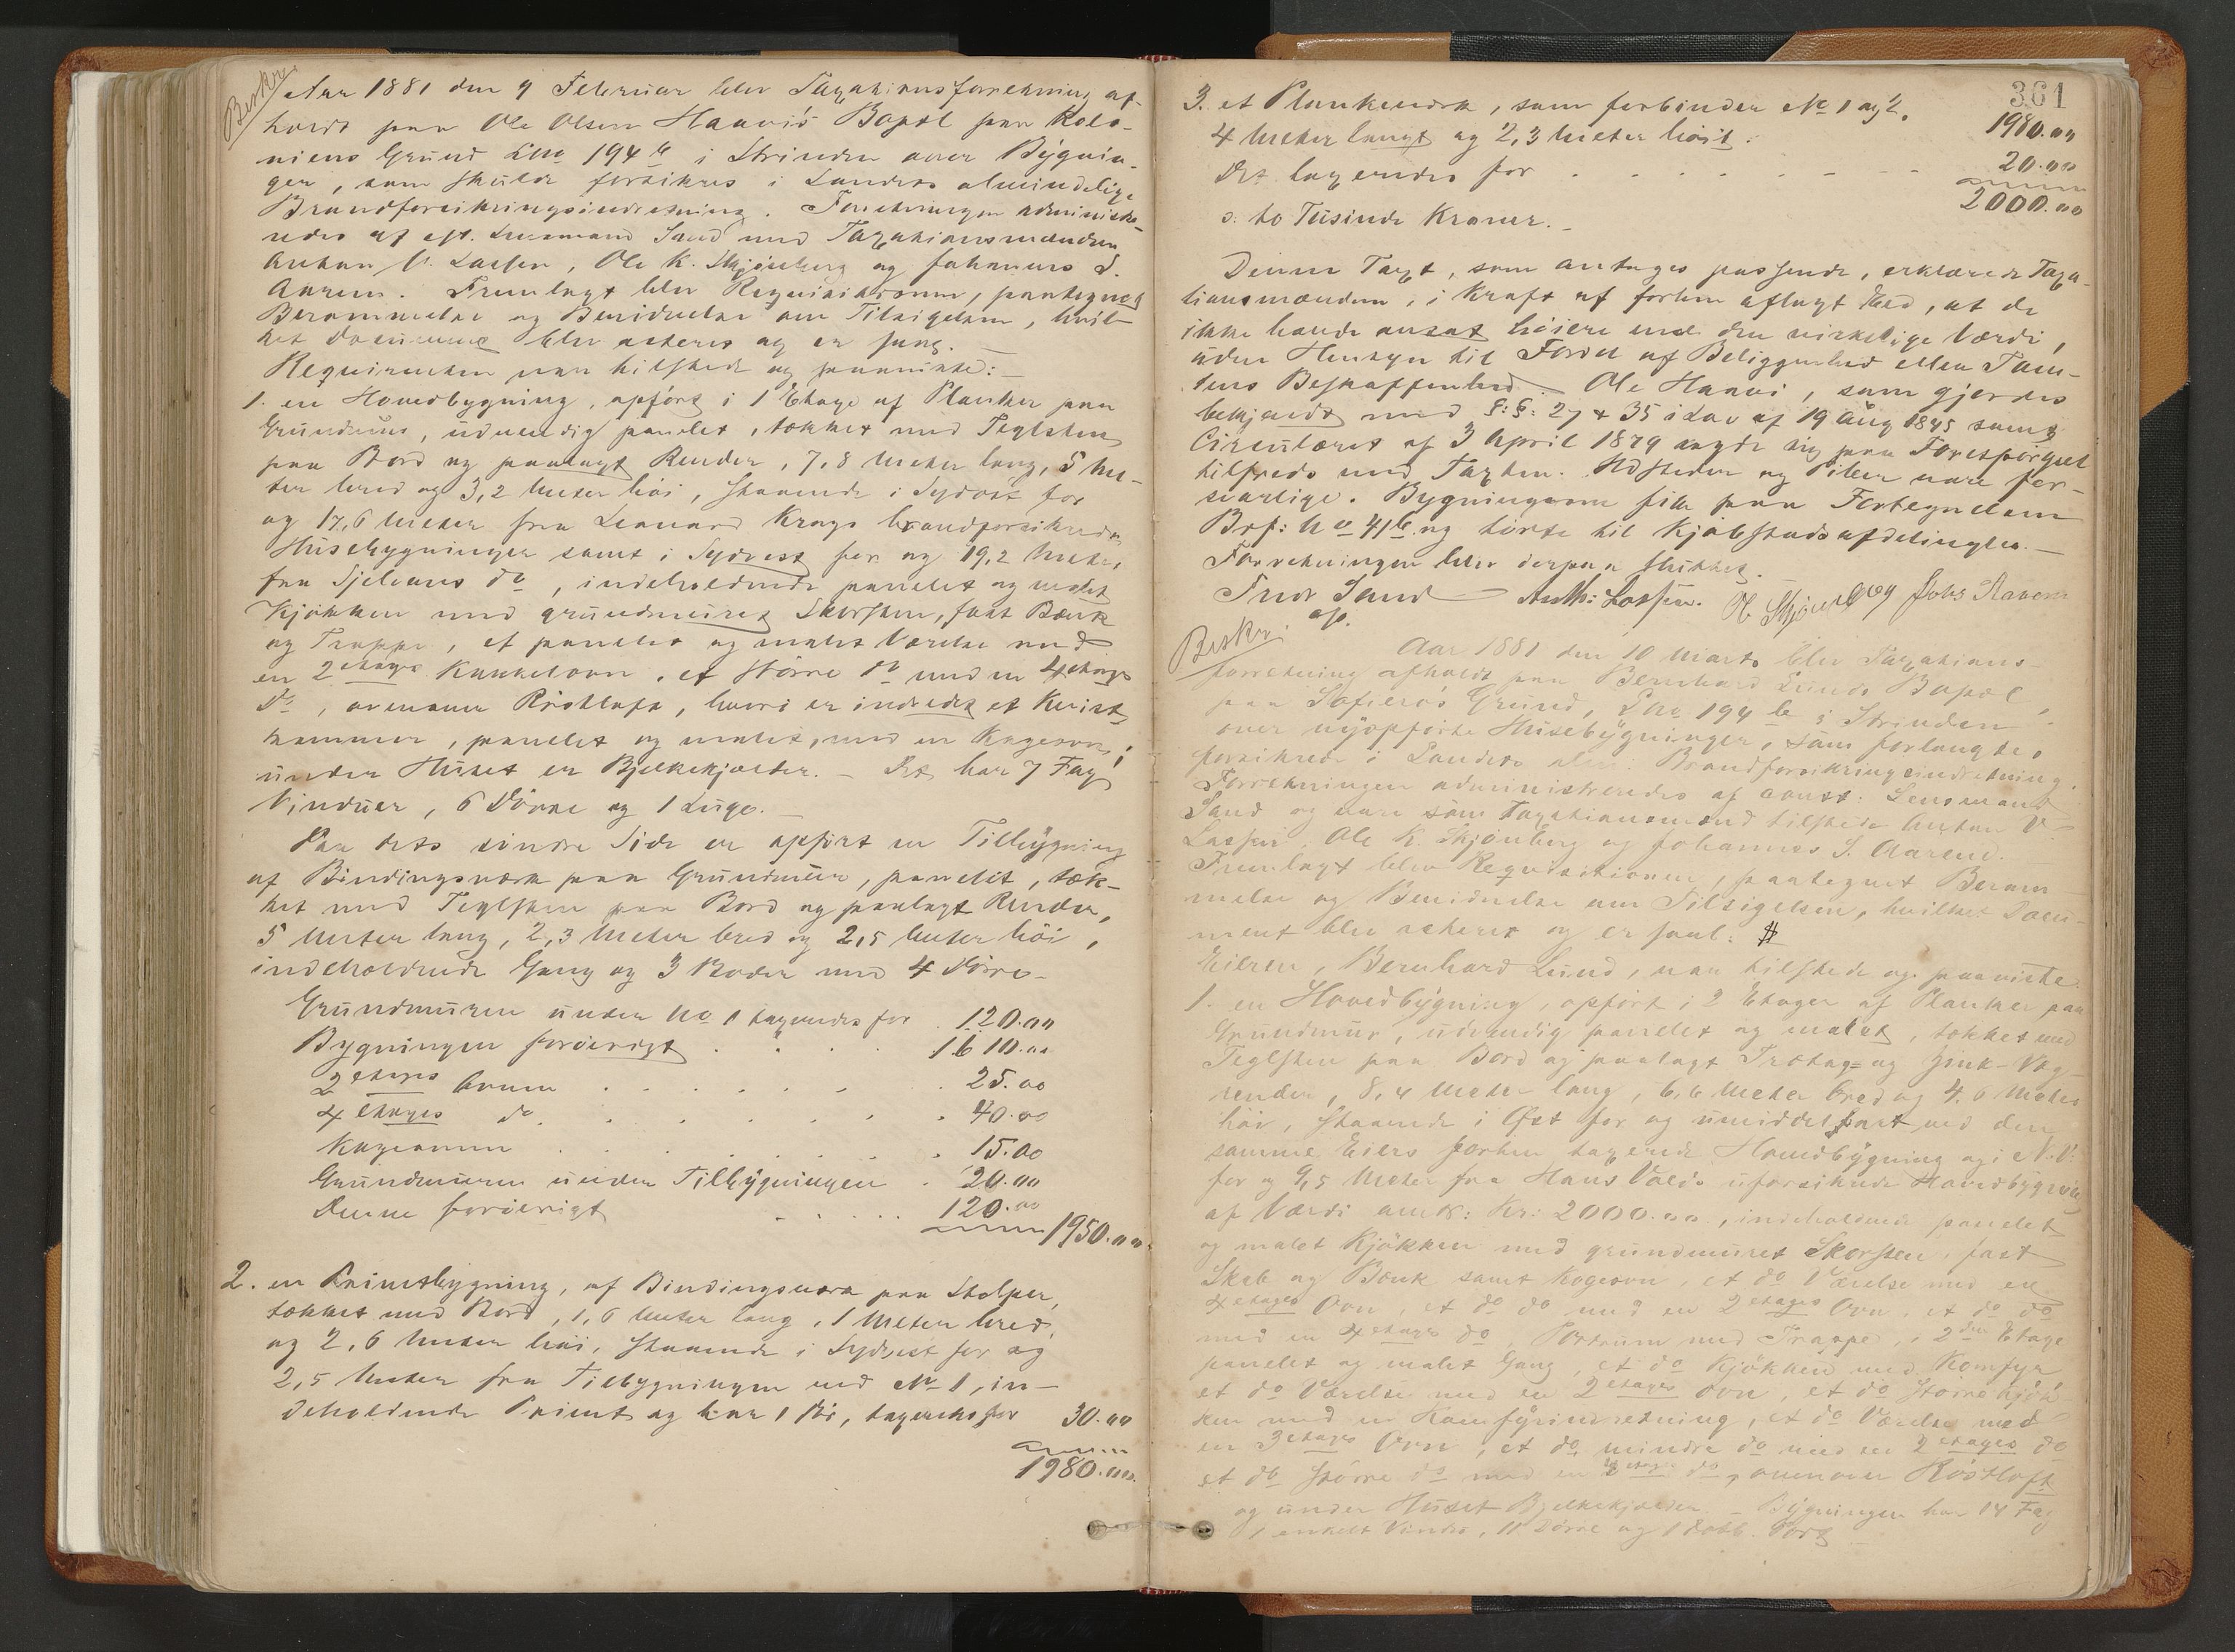 Beskr.
Aar 1881 den 9 Februar blev Taxationsforretning af-
holdt paa Ole Olsen Haavis Bopæl paa Kolo-
niens Grund LNo 194 b i Strinden over Bygnin-
ger, som skulde forsikres i Landets almindelige
Brandforsikringsindretning. Forretningen administre-
redes af cst. Lensmand Sand med Taxationsmændene
Anton V. Lassen, Ole K. Skjönberg og Johannes S.
Aarene. Fremlagt blev Requisitionen, paategnet
Berammelse og Bevidnelse om Tilsigelsen, hvil-
ket Document blev acteret og er saal.
Requirenten var tilstede og paaviste:
1. en Hovedbygning, opfört i 1 Etage af Planker paa
Grundmur, udvendig panelet, tækket med Teglsten
paa Bord og paalagt Render, 7,8 Meter lang, 5 Me-
ter bred og 3,2 Meter höi, staaende i Sydost for
og 17,6 Meter fra Leonard Krags brandforsikrede
Husebygninger samt i Sydvest for og 19,2 Meter
fra Sjelvens do, indeholdende panelet og malet
Kjökken med grundmuret Skorsten, fast Bænk
og Trappe, et panelet og malet Værelse med
en 2 etages Kakkelovn, et större do med en 4 etages
do, ovenover Röstloft, hvori er indredet et Kvist-
kammer, panelet og malet, med en Kogeovn;
under Huset er Bjelkekjælder. – Det har 7 Fag
Vinduer, 6 Dörre og 1 Luge.
Paa dets söndre Side er opfört en Tilbygning
af Bindingsværk paa Grundmur, panelet, tæk-
ket med Teglsten paa Bord og paalagt Render,
5 Meter lang, 2,3 Meter bred og 2,5 Meter höi,
indeholdende Gang og 3 Boder med 4 Dörre
Grundmuren under No 1 taxeredes for . 120.00
Bygningen foröverigt . . . . 1610.00
2 etages Ovnen . . . . . . 25.00
4 etages do . . . . . . 40.00
Kogeovnen . . . . . . 15.00
Grundmuren under Tilbygningen . 20.00
Denne foröverigt . . . . 120.00
1950.00
2. en Privetbygning, af Bindingsværk paa Stolper,
tækket med Bord, 1,6 Meter lang, 1 Meter bred
og 2,6 Meter höi, staaende i Sydvest for og
2,5 Meter fra Tilbygningen ved No 1, in-
deholdende Privet og har 1 Dör, taxeredes for 30.00
1980.00
361
3. et Plankeværk, som forbinder No 1 og 2.
1980.00
4 Meter langt og 2,3 Meter höit.
Det taxeredes for . . . . . . 20.00
2000.00
o: to Tusinde Kroner.
Denne Taxt, som antages passende, erklærede Taxa-
tionsmændene, i Kraft af forhen aflagt Eed, at de
ikke havde ansat höiere end den virkelige Værdi,
uden Hensyn til Fordel af Beliggenhed eller Tom-
tens Beskaffenhed. Ole Haavi, som gjordes
bekjendt med §:§: 27 & 35 i Lov af 19 Aug 1845 samt
Circulæret af 3 April 1879 sagde sig paa Forespörgsel
tilfreds med Taxten. Ildsteder og Piber vare for-
svarlige. Bygningerne fik paa Fortegnelsen
Brf: No 41 b og hörte til Kjöbstadsafdelingen.
Forretningen blev derpaa sluttet.
Sand Anth: Lassen. O. Skjönberg Johs Aarene
cst.
Beskr.
Aar 1881 den 10 Marts blev Taxations-
forretning afholdt paa Bernhard Lunds Bopæl
paa Sofieros Grund, LNo 194 b i Strinden
over nyopförte Husebygninger, som forlangtes
forsikrede i Landets alm: Brandforsikringsindretning.
Forretningen administreredes af const: Lensmand
Sand og vare som Taxationsmænd tilstede Anton V.
Lassen, Ole K. Skjönberg og Johannes S. Aarene.
Fremlagt blev Requisitionen, paategnet Beram-
melse og Bevidnelse om Tilsigelsen, hvilket Docu-
ment blev acteret og er saal: #
Eieren, Bernhard Lund, var tilstede og paaviste
1. en Hovedbygning, opfört i 2 Etager af Planker paa
Grundmur, udvendig panelet og malet, tækket med
Teglsten paa Bord og paalagt Trætag- og Zink-Væg-
render, 8,4 Meter lang, 6,6 Meter bred og 4,6 Meter
höi, staaende i Øst for og umiddelbart ved den
samme Eiers forhen taxerede Hovedbygning og i N.V.
for og 9,5 Meter fra Hans Volds uforsikrede Hovedbygning
af Værdi omtr: Kr: 2000.00, indeholdende panelet
og malet Kjökken med grundmuret Skorsten, fast
Skab og Bænk samt Kogeovn, et do Værelse med en
4 etages Ovn, et do do med en 2 etages Ovn, et do do
med en 4 etages do, Portrum med Trappe, i 2den Etage
panelet og malet Gang, et do Kjökken med Komfyr
et do Værelse med en 2 etages Ovn, et do större Kjök-
ken med en Komfyrindretning, et do Værelse med
en 3 etages Ovn, et do mindre do med en 2 etages do
et do större do med en etages do, ovenover Röstloft
og under Huset Bjelkekjælder – Bygningen har 14 Fag
1 enkelt Vindu, 11 Dörre og 1 dobb. Port